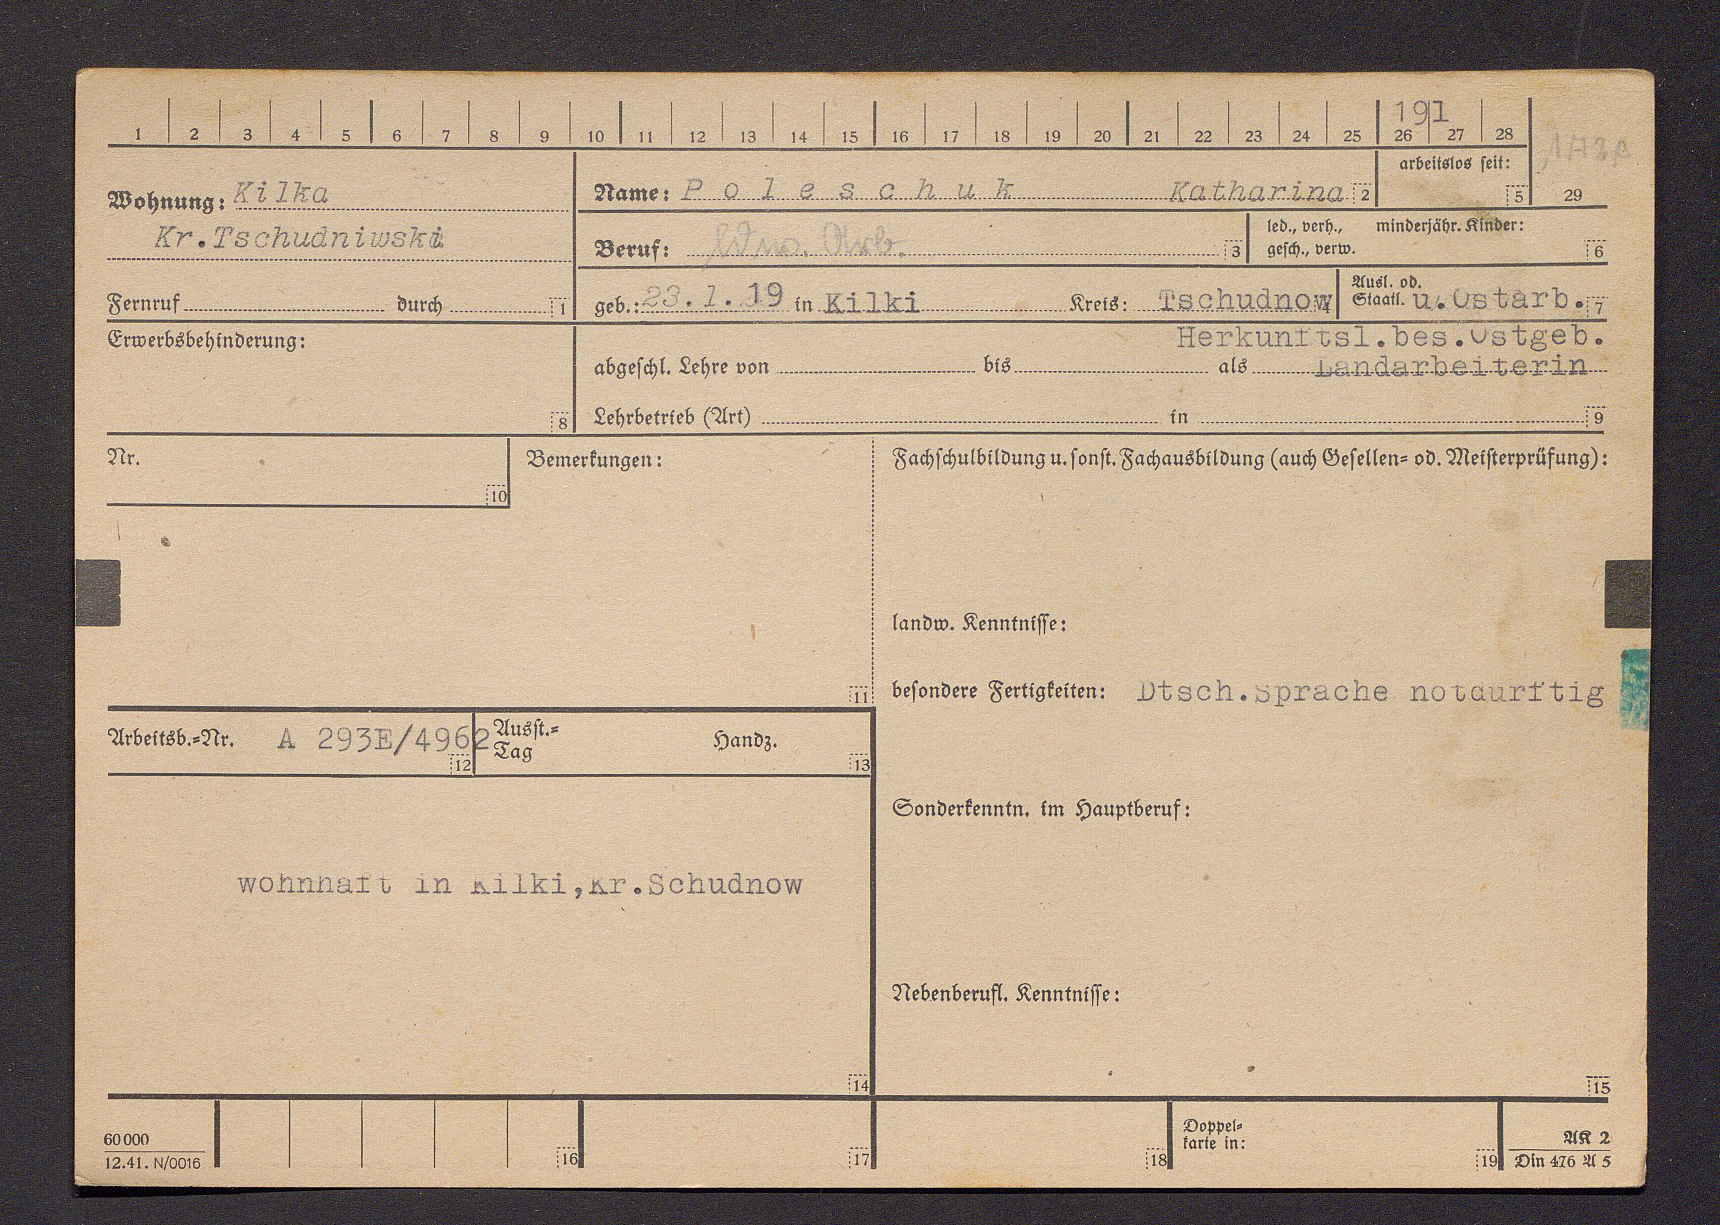 1 2 3 4 5 6 7 8 9 10 11 12 13 14 15 16 17 18 19 20 21 22 23 24 25 26 27 28
191
arbeitslos seit:
5 29
Wohnung: Kilka
Kr.Tschudniwski
Name: P o l e s c h u k Katharina 2
Beruf: Arb. 3
led., verh., gesch., verw.
minderjähr. Kinder: 6
Fernruf durch 1
geb.: 23.1.19 in Kilki Kreis: Tschudnow 4
Ausl. od. Staatl. u.Ostarb. 7
Herkunftsl.bes.Ostgeb.
Erwerbsbehinderung:
8
abgeschl. Lehre von bis als Landarbeiterin
Lehrbetrieb (Art) in 9
Nr.
10
Bemerkungen:
11
Fachschulbildung u. sonst. Fachausbildung (auch Gesellen= od. Meisterprüfung):
landw. Kenntnisse:
besondere Fertigkeiten: Dtsch.Sprache notdürftig
Arbeitsb.=Nr. A 293E/4962
12
Ausst.=
Tag
Handz.
13
Sonderkenntn. im Hauptberuf:
wohnhaft in Kilki,Kr.Schudnow
Nebenberufl. Kenntnisse:
14
15
60000
12.41. N/0016
16
17
18
Doppel=
karte in:
19
AK 2
Din 476 A 5